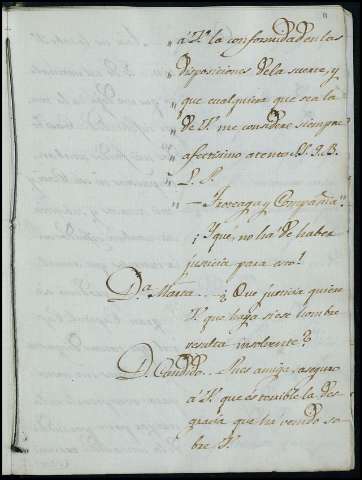 " á V. la conformidad en las
" disposiciones de la suerte, y
" que cualquiera que sea la
" de V. me considere siempre
" afectísimo atento S. S. Q. B.
" S. P.
" — Arteaga y Compañia."
¡ Y que, no ha de haber
justicia para eso!
D.a Marta.. ¿ Que justicia quiere
V. que haya si ese hombre
resulta insolvente?
D. Candido.. Pues amiga aseguro
á V. que es terrible la des-
gracia que ha venido so-
bre V.